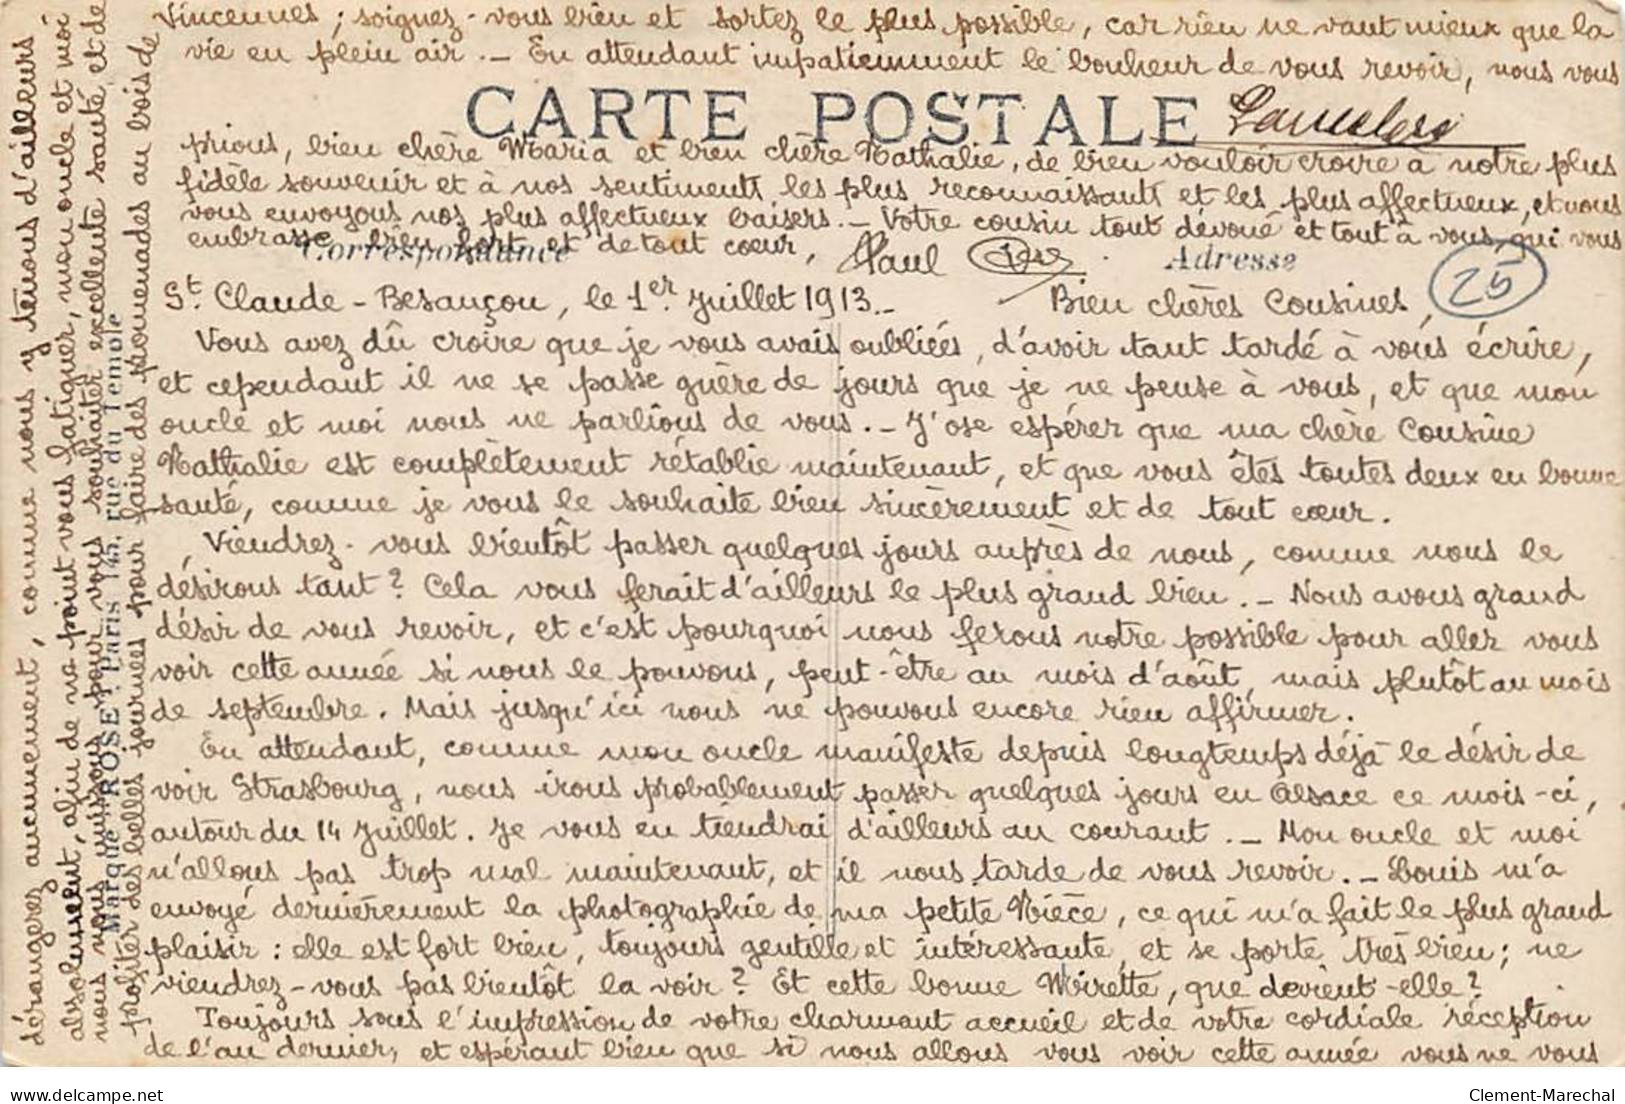 CARTE POSTALE
Correspondance
Adresse
25
St. Claude - Besançon, le 1er Juillet 1913.-
Bien chères Cousines,
Vous avez dû croire que je vous avais oubliées, d'avoir tant tardé à vous écrire,
et cependant il ne se passe guère de jours que je ne pense à vous, et que mon
oncle et moi nous ne parlions de vous. - J'ose espérer que ma chère Cousine
Nathalie est complètement rétablie maintenant, et que vous êtes toutes deux en bonne
santé, comme je vous le souhaite bien sincèrement et de tout cœur.
Viendrez-vous bientôt passer quelques jours auprès de nous, comme nous le
désirons tant? Cela vous ferait d'ailleurs le plus grand bien. - Nous avons grand
désir de vous revoir, et c'est pourquoi nous ferons notre possible pour aller vous
voir cette année si nous le pouvons, peut-être au mois d'août, mais plutôt au mois
de septembre. Mais jusqu'ici nous ne pouvons encore rien affirmer.
En attendant, comme mon oncle manifeste depuis longtemps déjà le désir de
voir Strasbourg, nous irons probablement passer quelques jours en Alsace ce mois-ci,
autour du 14 Juillet. Je vous en tiendrai d'ailleurs au courant. - Mon oncle et moi
n'allons pas trop mal maintenant, et il nous tarde de vous revoir. - Louis m'a
envoyé dernièrement la photographie de ma petite Nièce, ce qui m'a fait le plus grand
plaisir : elle est fort bien, toujours gentille et intéressante, et se porte très bien; ne
viendrez-vous pas bientôt la voir? Et cette bonne Mirette, que devient-elle?
Toujours sous l'impression de votre charmant accueil et de votre cordiale réception
de l'an dernier, et espérant bien que si nous allons vous voir cette année vous ne vous
dérangerez aucunement, comme nous y tenons d'ailleurs
absolument, afin de ne point vous fatiguer, mon oncle et moi
nous nous unissons pour vous souhaiter excellente santé, et de
profiter des belles journées pour faire des promenades au bois de
Marque ROSE. Paris 145, rue du Temple
Vincennes ; soignez-vous bien et sortez le plus possible, car rien ne vaut mieux que la
vie en plein air. - En attendant impatiemment le bonheur de vous revoir, nous vous
prions, bien chère Maria et bien chère Nathalie, de bien vouloir croire à notre plus
fidèle souvenir et à nos sentiments les plus reconnaissants et les plus affectueux, et nous
vous envoyons nos plus affectueux baisers. - Votre cousin tout dévoué et tout à vous, qui vous
embrasse bien fort et de tout cœur,
Paul
© delcampe.net
Clement-Marechal